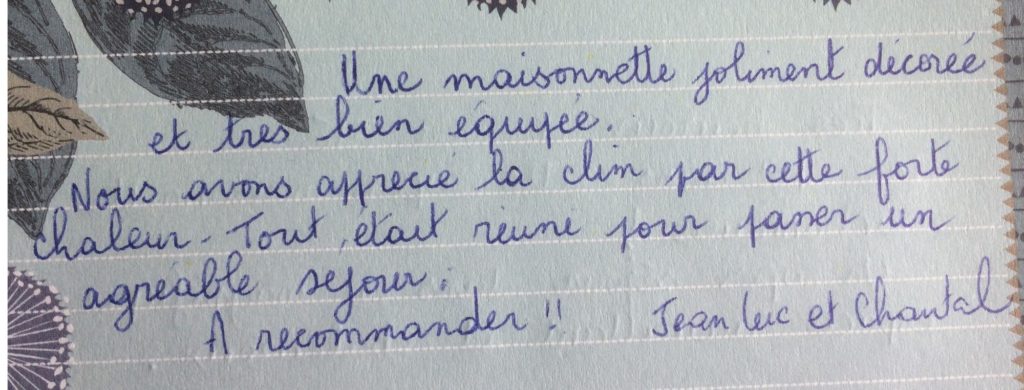 Une maisonnette joliment décorée
et tres bien équipée.
Nous avons apprecié la clim par cette forte
chaleur. Tout était réuni pour passer un
agréable séjour.
A recommander !! Jean Luc et Chantal